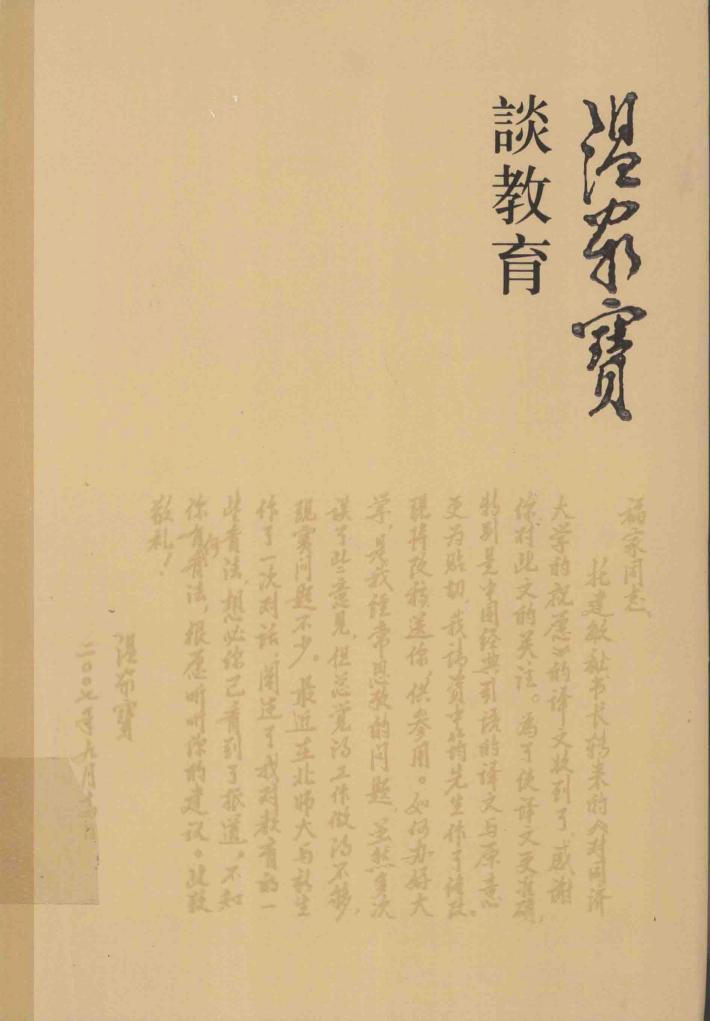 温家寶
談教育
福家同志：
托建敏秘书长转来的《对同济
大学的祝愿》的译文收到了，感谢
你对此文的关注。为了使译文更准确，
特别是中国经典引语的译文与原意
更为贴切，我请贾中筠先生作了修改。
现将改稿送你，供参用。如何办好大
学，是我经常思考的问题，虽然多次
谈了些意见，但总觉得工作做得不够，
现实问题不少。最近在北师大与新生
作了一次对话，阐述了我对教育的一
些看法，想必你已看到了报道。不知
你有何看法，很愿听听你的建议。此致
敬礼！
温家寶
二〇〇七年九月